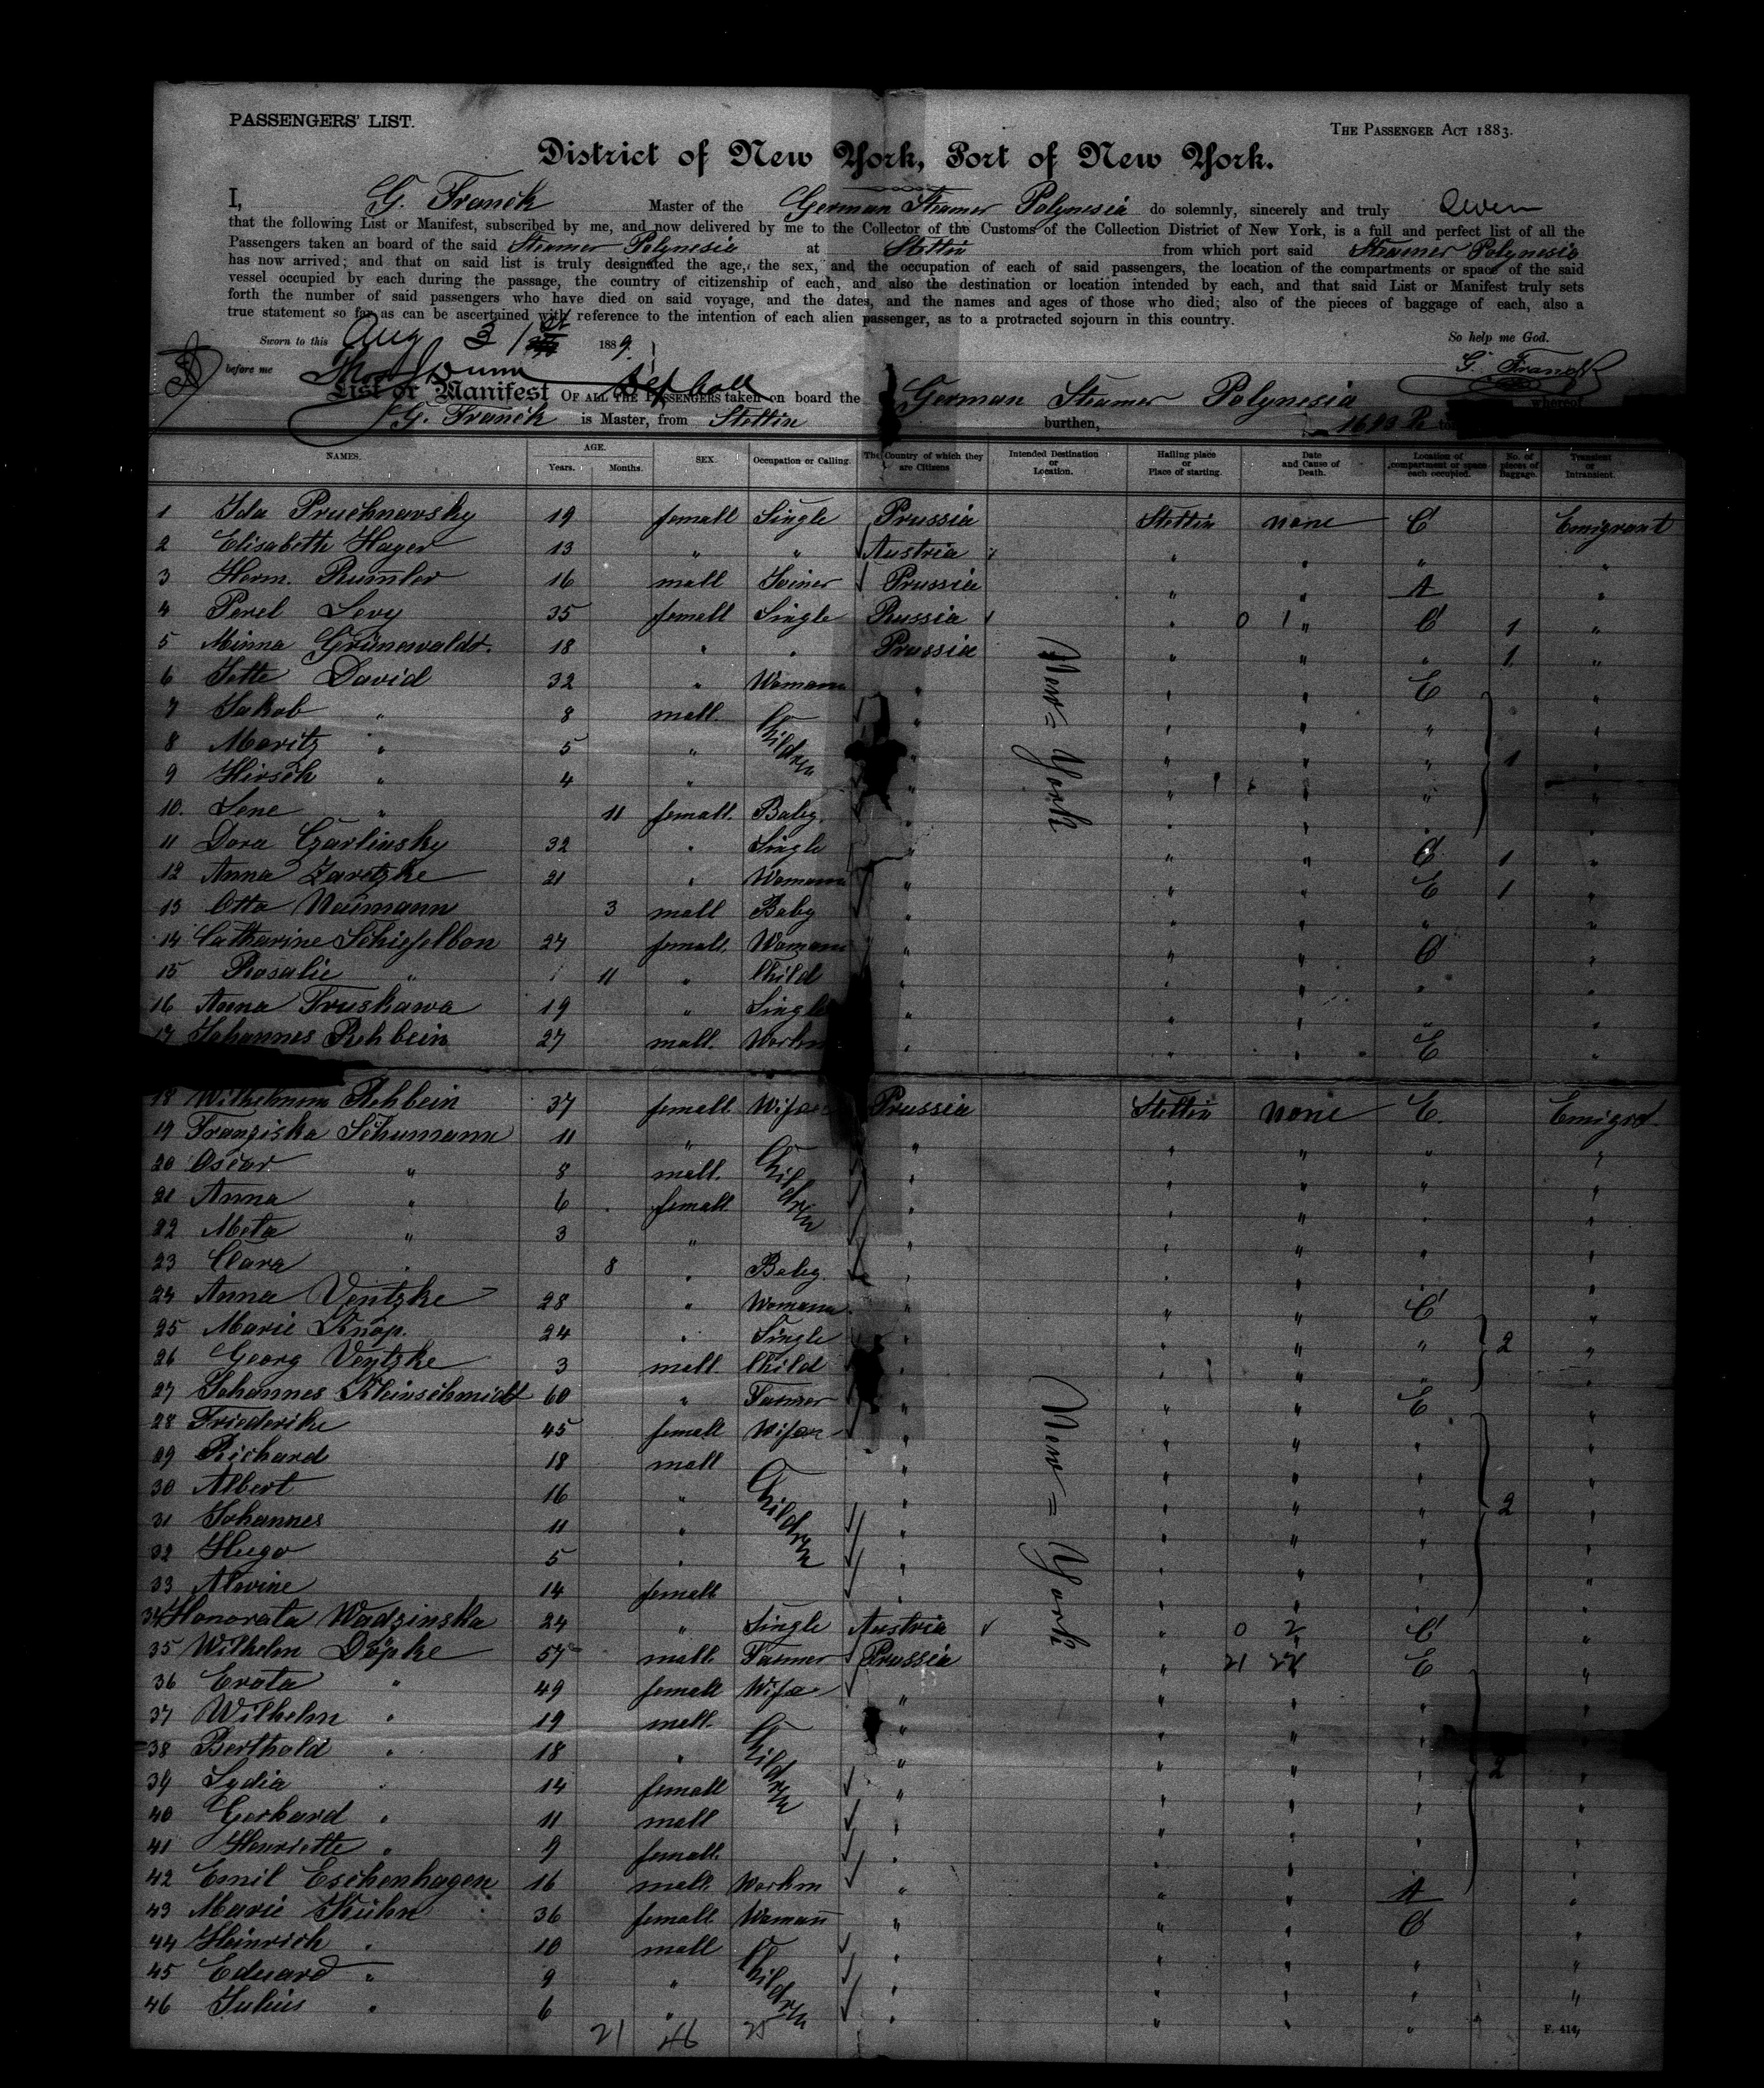 PASSENGERS' LIST.
THE PASSENGER ACT 1883.
District of New York, Port of New York.
I, G. Franck Master of the German Steamer Polynesia do solemnly, sincerely and truly
that the following List or Manifest, subscribed by me, and now delivered by me to the Collector of the Customs of the Collection District of New York, is a full and perfect list of all the
Passengers taken an board of the said Steamer Polynesia at Stettin from which port said Steamer Polynesia
has now arrived; and that on said list is truly designated the age, the sex, and the occupation of each of said passengers, the location of the compartments or space of the said
vessel occupied by each during the passage, the country of citizenship of each, and also the destination or location intended by each, and that said List or Manifest truly sets
forth the number of said passengers who have died on said voyage, and the dates, and the names and ages of those who died; also of the pieces of baggage of each, also a
true statement so far as can be ascertained with reference to the intention of each alien passenger, as to a protracted sojourn in this country.
Sworn to this Aug 31st 1889. So help me God.
before me G. Franck
List or Manifest OF ALL THE PASSENGERS taken on board the German Steamer Polynesia whereof
G. Franck is Master, from Stettin burthen,
NAMES. AGE. Years. Months. SEX. Occupation or Calling. The Country of which they are Citizens Intended Destination or Location. Hailing place or Place of starting. Date and Cause of Death. Location of compartment or space each occupied. No. of pieces of Baggage. Transient or Intransient.
1 Ida Pruchnavsky 19 femall Single Prussia Stettin none C Emigrant
2 Elisabeth Hager 13 " " Austria " " " "
3 Herm. Rumler 16 mall Joiner Prussia " " A "
4 Perel Levy 35 femall Single Russia " 0 1 " C 1 "
5 Minna Grünewaldt. 18 " " Prussia " " " 1 "
6 Jette David 32 " Womann " " " E "
7 Jakob " 8 mall. Children " " " " "
8 Moritz " 5 " " " " " 1 "
9 Hirsch " 4 " " " " " "
10. Lene " 11 femall. Baby. " " " " "
11 Dora Czarlinsky 32 " Single " " " C 1 "
12 Anna Zaretzke 21 " Womann " " " E 1 "
13 Otto Neumann 3 mall Baby " " " " "
14 Catharine Schiefelbon 27 femall. Womann " " " C "
15 Rosalie " 11 " Child " " " " "
16 Anna Truskawa 19 " Single " " " " "
17 Johannes Rehbein 27 mall. Workm " " " E "
New=York
18 Wilhelmine Rehbein 37 femall Wife Prussia Stettin none E. Emigrt
19 Franziska Schumann 11 " Children " " " " "
20 Oscar " 8 mall. " " " " "
21 Anna " 6 femall " " " " "
22 Meta " 3 " " " " " "
23 Clara " 8 " Baby. " " " " "
24 Anna Ventzke 28 " Womann " " " C "
25 Marie Knop. 24 " Single " " " " 2 "
26 Georg Ventzke 3 mall. Child " " " " "
27 Johannes Kleinschmidt 60 " Farmer " " " E "
28 Friederike 45 femall Wife " " " " "
29 Richard 18 mall Children " " " " "
30 Albert 16 " " " " " 2 "
31 Johannes 11 " " " " " "
32 Hugo 5 " " " " " "
33 Alovine 14 femall " " " " "
34 Honorata Wadzinska 24 " Single Austria " 0 2 C "
35 Wilhelm Döpke 57 mall Farmer Prussia " 21 E "
36 Erata " 49 femall Wife " " " " "
37 Wilhelm " 19 mall. Children " " " " "
38 Berthold " 18 " " " " " 2 "
39 Lydia " 14 femall " " " " "
40 Gerhard " 11 mall " " " " "
41 Henriette " 9 femall. " " " " "
42 Emil Eschenhagen 16 mall. Workm " " " A "
43 Marie Kühn 36 femall Womann " " " C "
44 Heinrich " 10 mall Children " " " " "
45 Eduard " 9 " " " " " "
46 Julius " 6 " " " " " "
New=York
21 46 25
F. 414.